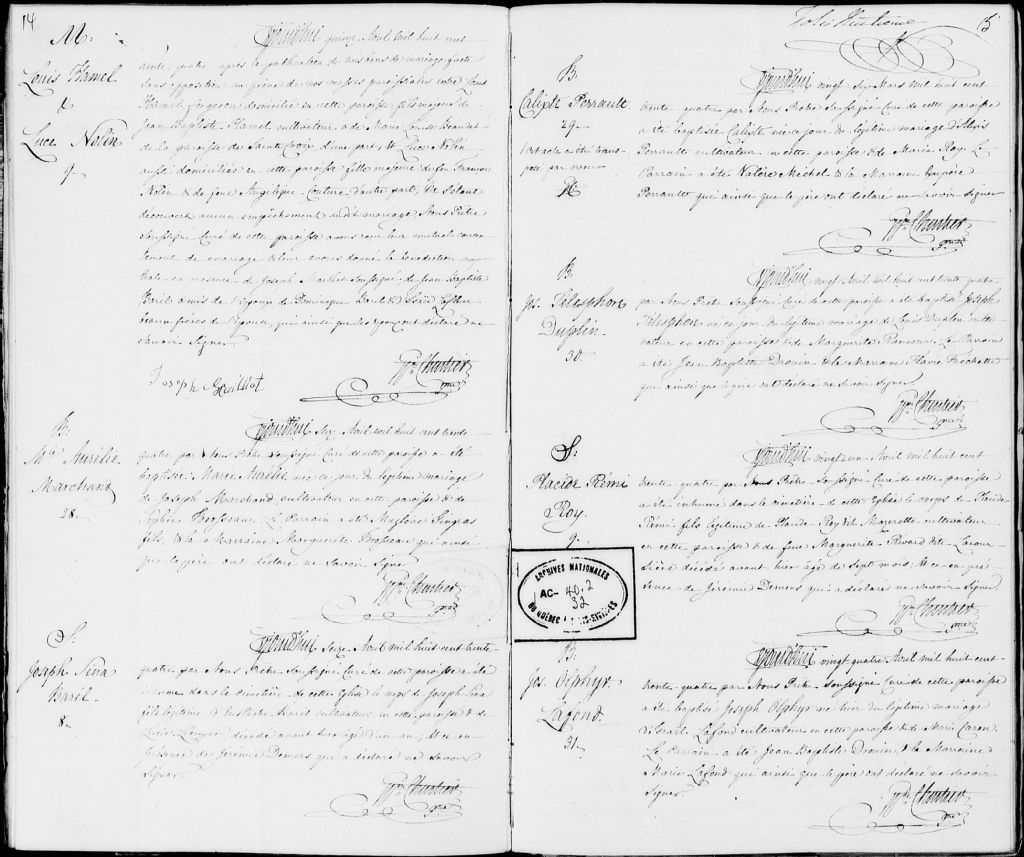 14
M.
Louis Hamel
&
Luce Nolin
9
Aujourd'hui quinze Avril mil huit cent
trente quatre après la publication de trois bans de mariage faite
sans opposition au prône de nos messes paroissiales entre Louis
Hamel forgeron domicilié en cette paroisse fils majeur de
Jean Baptiste Hamel cultivateur & de Marie Louise Beaudet
de la paroisse de Sainte Croix d'une part, & Luce Nolin
aussi domiciliée en cette paroisse fille majeure de feu François
Nolin & de feue Angelique Couture d'autre part, Ne s'étant
découvert aucun empêchement audit mariage, Nous Prêtre
Soussigné Curé de cette paroisse avons reçu leur mutuel consen
tement de mariage & leur avons donné la bénédiction nup
tiale en présence de Joseph soussigné, de Jean Baptiste
Baril amis de l'époux, de Dominique Baril &
beaux frères de l'épouse, qui ainsi que les époux ont déclaré ne
savoir Signer.
Joseph
Ptre
B.
Mie Aurélie
Marchand
28.
Aujourd'hui Seize Avril mil huit cent trente
quatre par Nous Prêtre Soussigné Curé de cette paroisse a été
baptisée Marie Aurélie née ce jour du légitime mariage
de Joseph Marchand cultivateur en cette paroisse & de
Sophie Brosseau. Le Parrain a été Magloire Gingras
fils, & la Marraine Marguerite Brosseau qui ainsi
que le père ont déclaré ne savoir Signer
Ptre
S.
Joseph
Baril
8.
Aujourd'hui Seize Avril mil huit cent trente
quatre par Nous Prêtre Soussigné Curé de cette paroisse a été
inhumé dans le cimetière de cette Eglise le corps de Joseph
fils légitime d'Eustache Baril cultivateur en cette paroisse & de
décédé avant hier âgé d'un an, & ce en
présence de Jérémie Demers qui a déclaré ne savoir
Signer.
Ptre
Folio Huitième
15
B.
Calixte Perrault
29.
l'acte a été trans-
posé par erreur
Aujourd'hui vingt Six Mars mil huit cent
trente quatre par Nous Prêtre Soussigné Curé de cette paroisse
a été baptisée Calixte née ce jour du légitime mariage d'Alexis
Perrault cultivateur en cette paroisse & de Marie Roy. Le
Parrain a été Valère Michel & la Marraine
Perrault qui ainsi que le père ont déclaré ne savoir Signer
Ptre
B.
Jos. Télesphore
Duplin.
30.
Aujourd'hui vingt Avril mil huit cent trente quatre
par Nous Prêtre Soussigné Curé de cette paroisse a été baptisé Joseph
Télesphore né ce jour du légitime mariage de Louis Duplin culti
vateur en cette paroisse & de Marguerite. Le Parrain
a été Jean Baptiste Drouin & la Marraine Flavie Frechette
qui ainsi que le père ont déclaré ne savoir Signer
Ptre
S.
Placide Rémi
Roy.
9.
Aujourd'hui vingt un Avril mil huit cent
trente quatre par Nous Prêtre Soussigné Curé de cette paroisse
a été inhumé dans le cimetière de cette Eglise le corps de Placide
Rémi fils légitime de Placide Roy dit Mazerette cultivateur
en cette paroisse & de feue Marguerite Rivard dite Lacour
sière décédé avant hier âgé de Sept mois, & ce en pré
sence de Jérémie Demers qui a déclaré ne savoir Signer.
Ptre
ARCHIVES NATIONALES
AC- 40.2
32
DU QUÉBEC À TROIS-RIVIÈRES
B.
Jos. Olphyr
Lafond.
31.
Aujourd'hui vingt quatre Avril mil huit cent
trente quatre par Nous Prêtre Soussigné Curé de cette paroisse
a été baptisé Joseph Olphyr né hier du légitime mariage
d' Lafond cultivateur en cette paroisse & de Marie Caron.
Le Parrain a été Jean Baptiste Drouin, & la Marraine
Marie Lafond qui ainsi que le père ont déclaré ne savoir
Signer.
Ptre